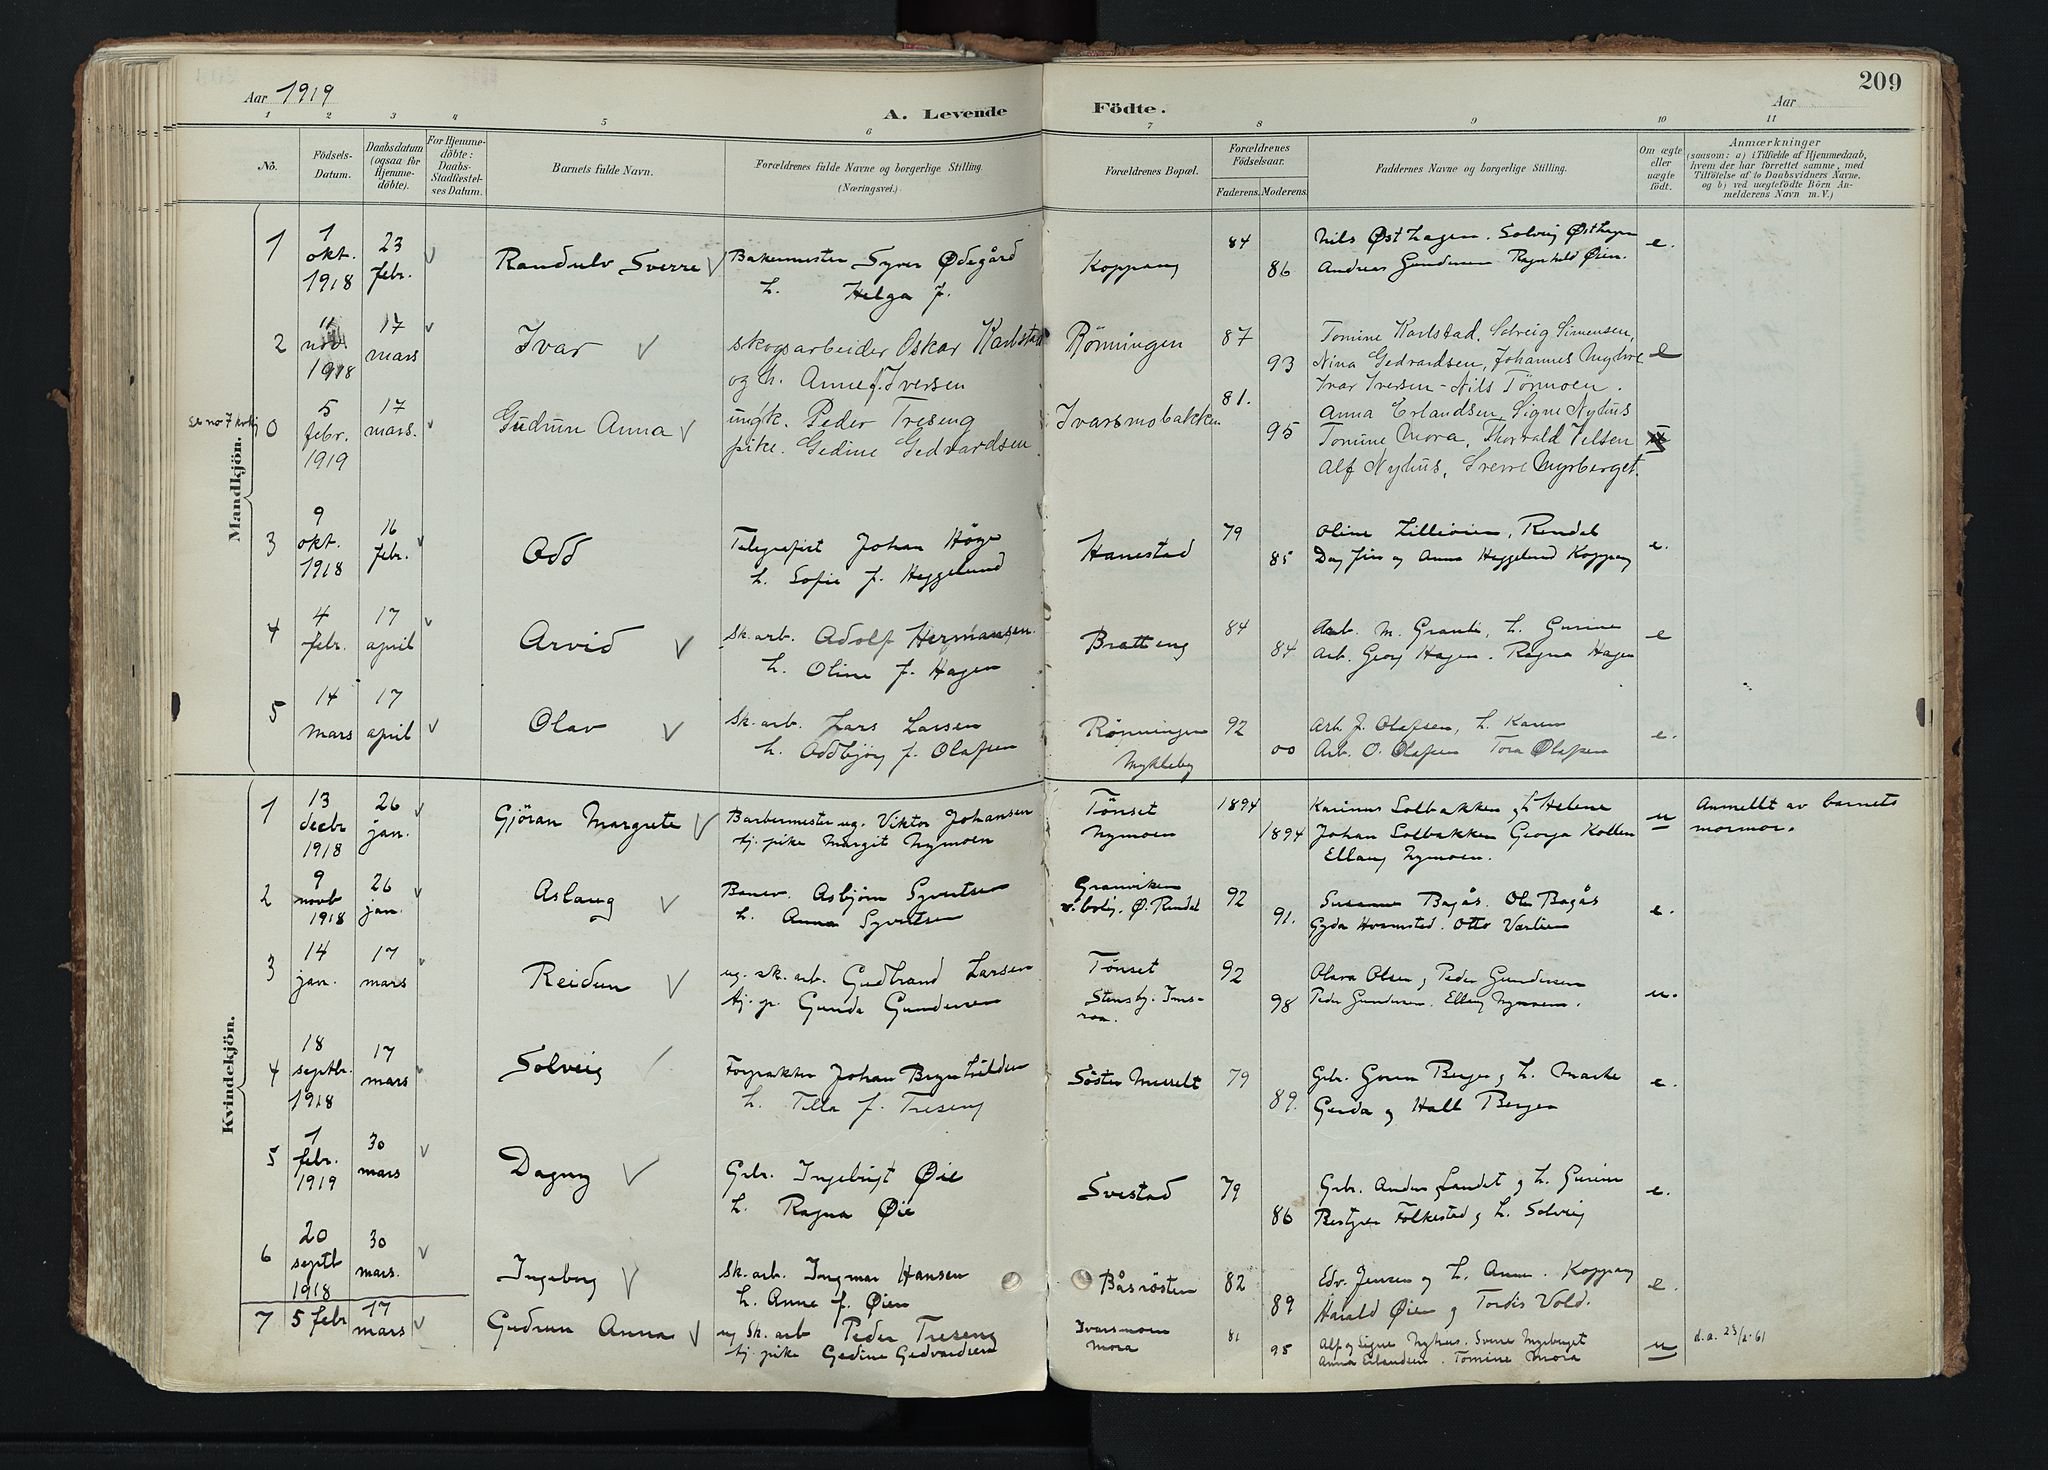 Aar 1919
A. Levende Födte.
Aar
209
1 2 3 4 5 6 7 8 9 10 11
No. Födsels-Datum. Daabsdatum (ogsaa for Hjemme-döbte). For Hjemme-döbte: Daabs-Stadfæstel-ses Datum. Barnets fulde Navn. Forældrenes fulde Navne og borgerlige Stilling. (Næringsvei.) Forældrenes Bopæl. Forældrenes Födselsaar. Faderens. Moderens. Faddernes Navne og borgerlige Stilling. Om ægte eller uægte født. Anmærkninger (saasom: a) i Tilfælde af Hjemmedaab, hvem der har forrettet samme, med Tilföielse af to Daabsvidners Navne, og b) ved uægtefödte Börn An-melderens Navn m.V.)
Mandkjön.
1 1 okt. 1918 23 febr. Randulv Sverre Bakermester Syver Ødegård 84 Nils Østhagen. Solveig Østhagen e.
h. Helga f. Koppang 86 Andreas Gundersen Ragnhild Øien.
2 11 nov. 1918 17 mars Ivar skogsarbeider Oskar Karlstad Rönningen 87 Tomine Karlstad, Solveig Simensen, e
og h. Anne f. Iversen 93 Nina Gedvardsen, Johannes Myhre
Ivar Iversen - Nils Törmoen.
0 5 febr. 1919 17 mars. Gudrun Anna ungk. Peder Treseng Ivarsmobakken 81. Anna Erlandsen, Signe Nyhus
pike. Gedine Gedvardsen 95 Tomine Mora, Thorvald Nilsen
Alf Nyhus, Sverre Myrberget.
3 9 okt. 1918 16 febr. Odd Telegrafist Johan Høye Hanestad 79 Oline Lilleöien, Rendal e.
h. Sofie f. Heggelund 85 Anna Heggelund Koppang
4 4 febr. 17 april Arvid Sk. arb. Adolf Hermansen. Bratteng 84 Arb. M. h. Gurine e
h. Oline f. Hagen 84 Arb. Georg Hagen. Ragna Hagen
5 14 mars 17 april Olav Sk. arb. Lars Larsen Rönningen 92 Arb. J. Olafsen, h. Karen e.
h. Oddbjørg f. Olafsen Mykleby 00 Arb. O. Olafsen Tora Olafsen
Kvindekjön.
1 13 decbr 1918 26 jan. Gjöran Margrete Barbermester ug. Viktor Johansen Tönset 1894 Karinus Solbakken og h Helene u Anmeldt av barnets
tj. pike Margit Nymoen Nymoen 1894 Johan Solbakken Georga Kollen mormor.
Ellany Nymoen.
2 9 novb 1918 26 jan. Aslaug Banev. Asbjörn Syvertsen Granviken 92 Susanne Bagås. Ole Bagås e.
h. Anna Syvertsen v. bolig. Ø. Rendal 91. Gyda Otto
3 14 jan. 17 mars Reidun ug. sk. arb. Gudbrand Larsen Tönset 92 Olava Olsen, Peder Gundersen u.
tj. p. Gunda Gundersen 98 Peder Gundersen. Ellany Nymoen.
4 18 septbr. 1918 17 mars Solveig Forpakter Johan Brynhildsen Söstu Messelt 79 Gbr. Berger og h. Marthe e.
h. Tilla f. Treseng 89. Gerda og Halt Berger
5 1 febr. 1919 30 mars Dagny Gbr. Ingebrigt Øie Svestad 79 Gbr. h. Gurine e.
h. Ragna Øie 86 Bestyrer Folkestad og h. Solveig
6 20 septb 1918 30 mars. Ingeborg Sk. arb. Ingmar Hansen Båsrösten 82 Edv. Jensen og h. Anne. Koppang e.
h. Anne f. Øien 89 Harald Øien og Tordis Vold.
7 5 febr 17 mars Gudrun Anna ug Sk. arb Peder Treseng Ivarsmoen 81 Alf og Signe Nyhus. Sverre Myrberget u d.a. 23/2-61
tj. pike Gedine Gedvardsen Mora 95 Anna Erlandsen. Tomine Mora